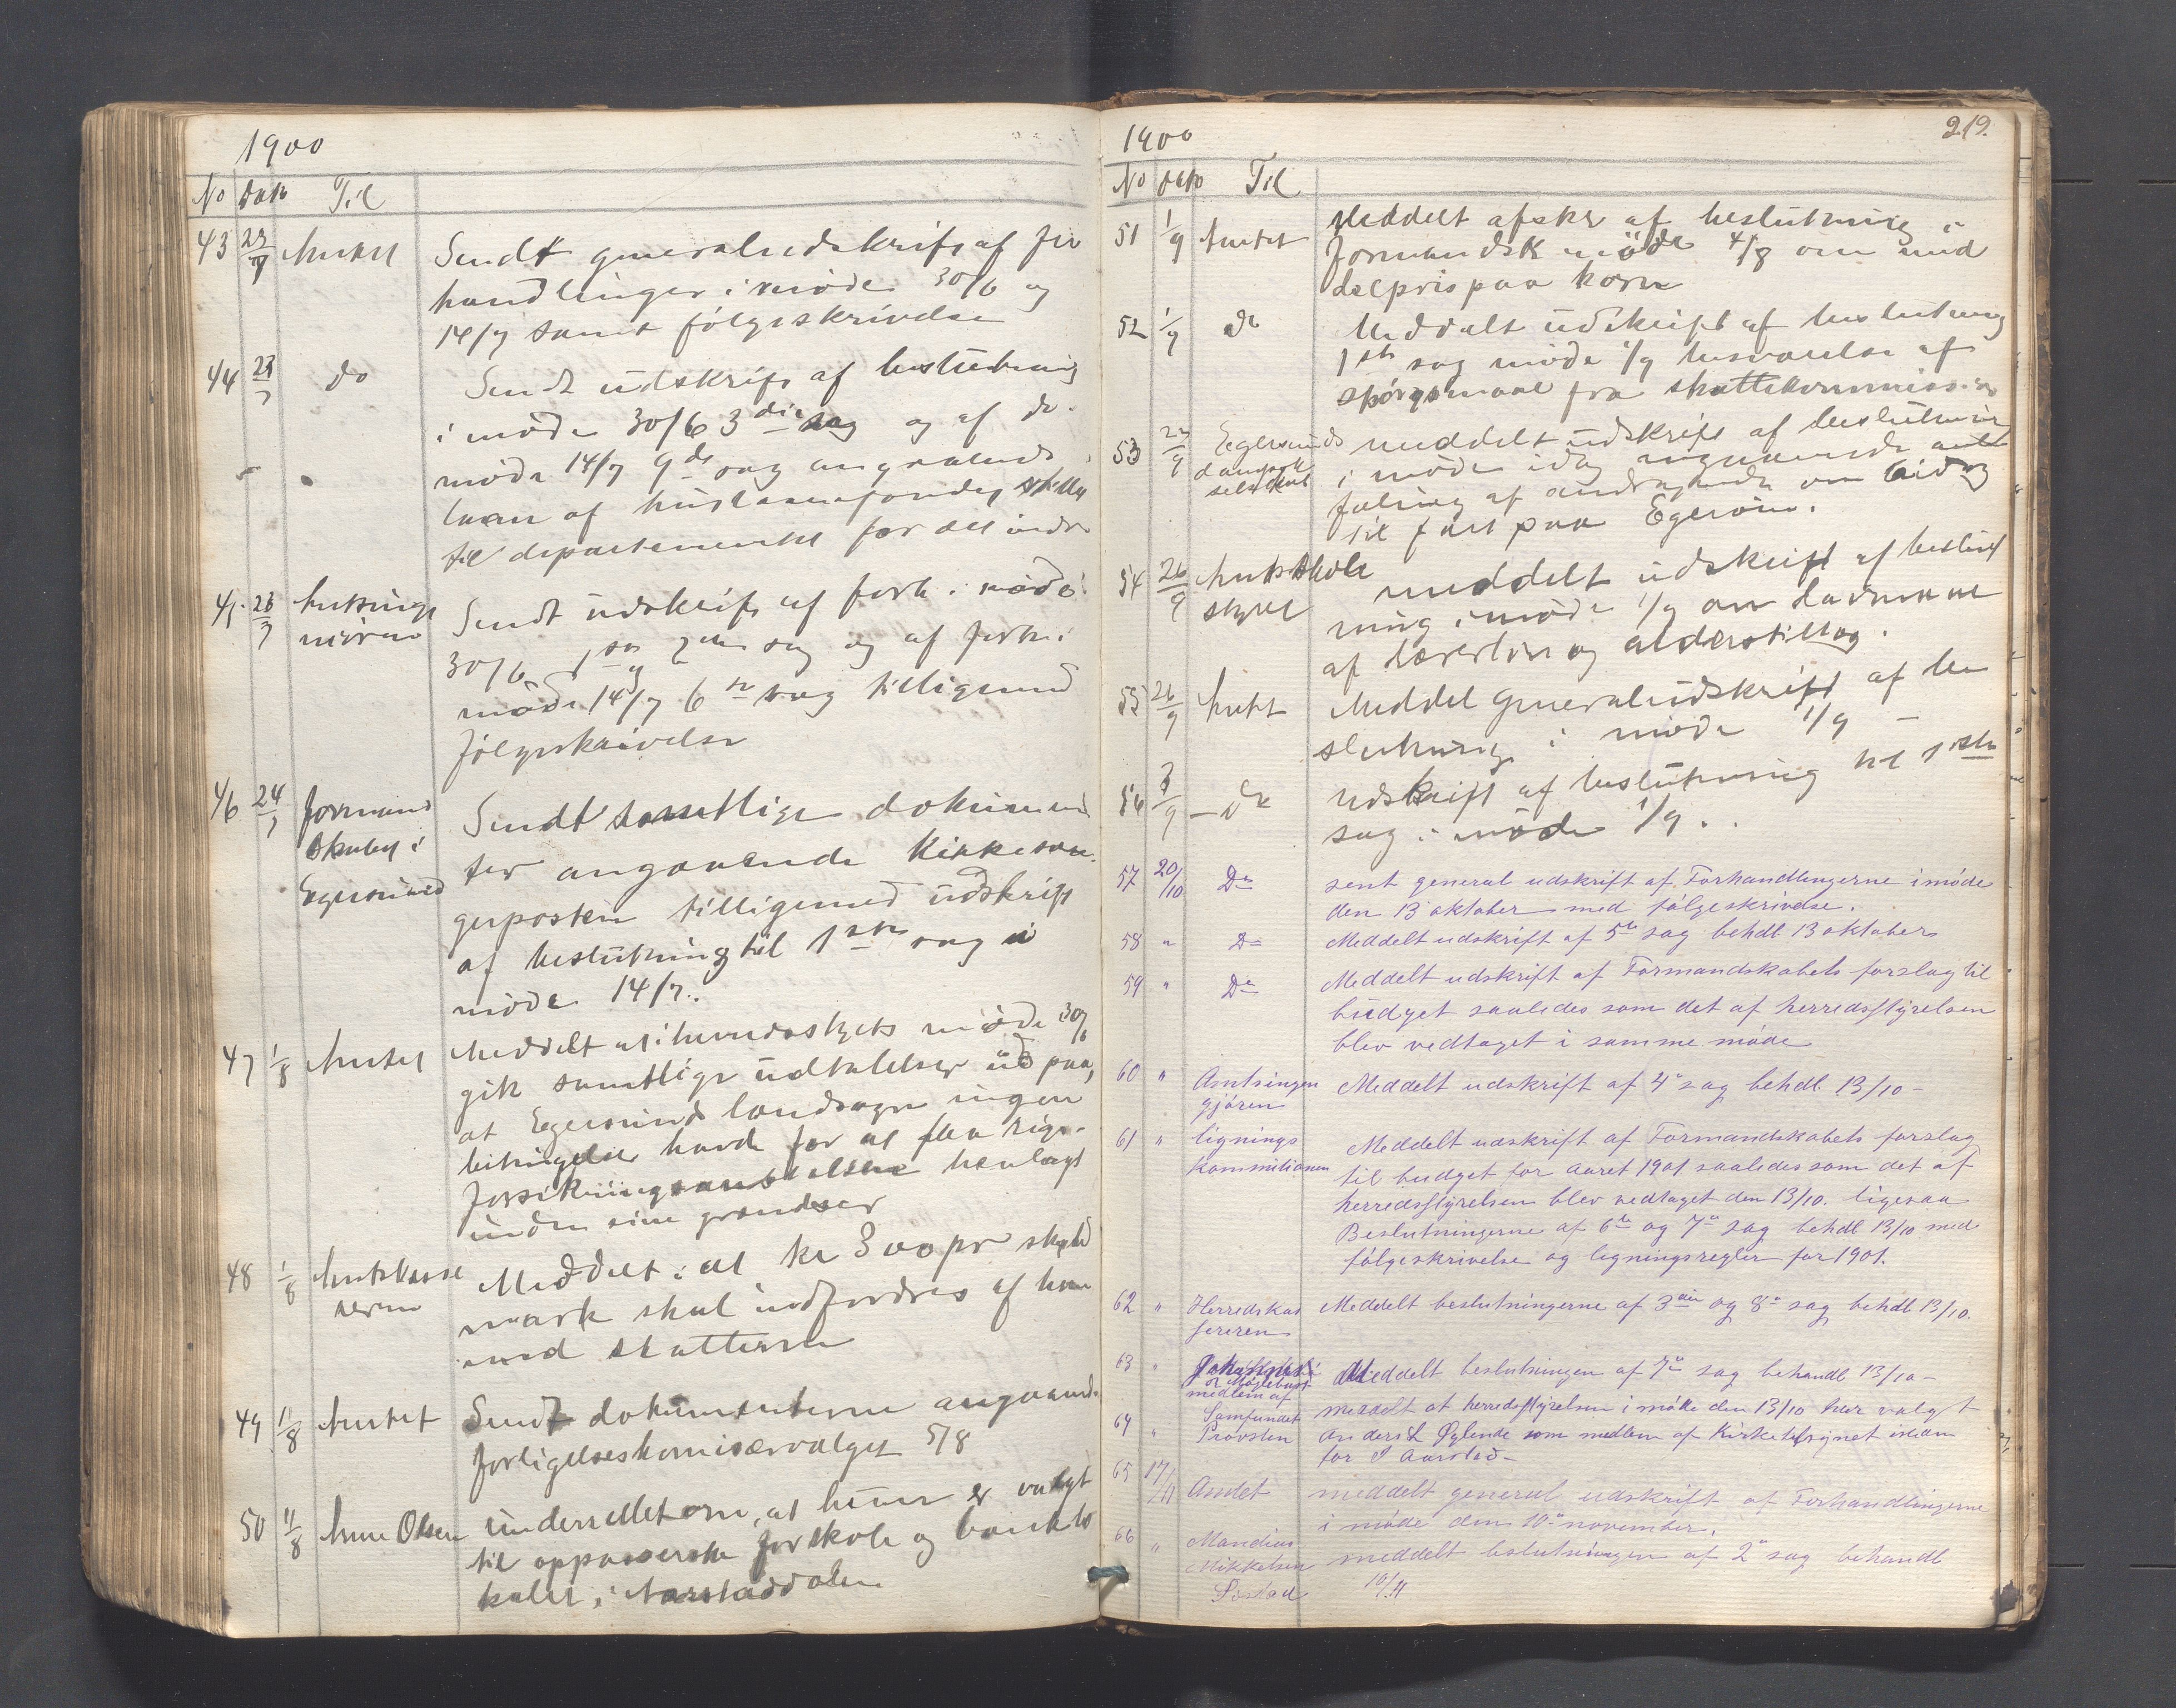 1900
No Dato Til
43 23/7 Amtet Sendt generaludskrift af for
handlinger i møde 30/6 og
14/7 samt følgeskrivelse
44 23/7 do Sendt udskrift af beslutning
i møde 30/6 3die sag og af do.
møde 14/7 9de sag angaaende
laan af huslaanefondet stillet
til departementet for det indre
45. 23/7 Amtsinge Sendt udskrift af forh. i møde
niøren 30/6 1ste og 2den sag og af forh. i
møde 14/7 6te sag tilligemed
følgeskrivelse
46 24/7 formand Sendt samtlige dokumen
skabet i ter angaaende Kirkesan-
Egersund gerposten tilligemed udskrift
af beslutning til 1ste sag i
møde 14/7.
47 1/8 Amtet Meddelt at i herredsstyrets møde 30/6
gik samtlige udtalelser ud paa,
at Egersund landsogn ingen
betingelser havde for at faa rigs-
forsikringsanstalten henlagt
inden sine grændser
48 1/8 Amtskasse Meddelt: at kr 300 pr skyld
reren mark skal indfordres af ham
med skatterne
49 11/8 Amtet Sendt dokumenterne angaaende
forligelseskomisærvalget 5/8
50 11/8 Anne Olsen underrettet om, at hun er valgt
til oppasserske for skole og banklo
kalet i Aarstaddalen
1900 219.
No Dato Til
51 1/9 Amtet Meddelt afskr af beslutning i
formandsk møde 4/8 om mid
delpris paa korn
52 1/9 do Meddelt udskrift af beslutning
1ste sag møde 1/9 besvarelse af
spørgsmaal fra skattekommission
53 22/9 Egersunds meddelt udskrift af beslutning
dampsk i møde idag angaaende anbe
selskab faling af andragende om bidrag
til fart paa Egerøen.
54 26/9 Amtsskole meddelt udskrift af beslut
styret ning i møde 1/9 om
af lærerløn og alderstillæg.
55 26/9 Amtet Meddelt generaludskrift af be
slutning i møde 1/9 –
56 3/9 – do udskrift af beslutning til 1ste
sag i møde 1/9.
57 20/10 Do sent general udskrift af Forhandlingerne i møde
den 13 oktober med følgeskrivelse.
58 " Do Meddelt udskrift af 5te sag behdl 13 oktober
59 " Do Meddelt udskrift af Formandskabets forslag til
budget saaledes som det af herredsstyrelsen
blev vedtaget i samme møde
60 " Amtsingen Meddelt udskrift af 4e sag behdl 13/10 –
gjøren
61 " lignings Meddelt udskrift af Formandskabets forslag
kommisionen til budget for aaret 1901 saaledes som det af
herredsstyrelsen blev vedtaget den 13/10. ligesaa
Beslutningerne af 6te og 7e sag behdl 13/10 med
følgeskrivelse og ligningsregler for 1901.
62 " Herredskas Meddelt beslutningerne af 3die og 8e sag behdl 13/10.
sereren
63 " Meddelt beslutningen af 7e sag behandl 13/10 –
medlem af
Samfundet meddelt at herredsstyrelsen i møde den 13/10 har valgt
64 " Provsten Anders L Øglende som medlem af Kirketilsynet istedn
for Aarstad –
65 17/11 Amtet meddelt general udskrift af Forhandlingerne
i møde den 10e november.
66 " Mandius
Mikkelsen meddelt beslutningen af 2e sag behandl
10/11